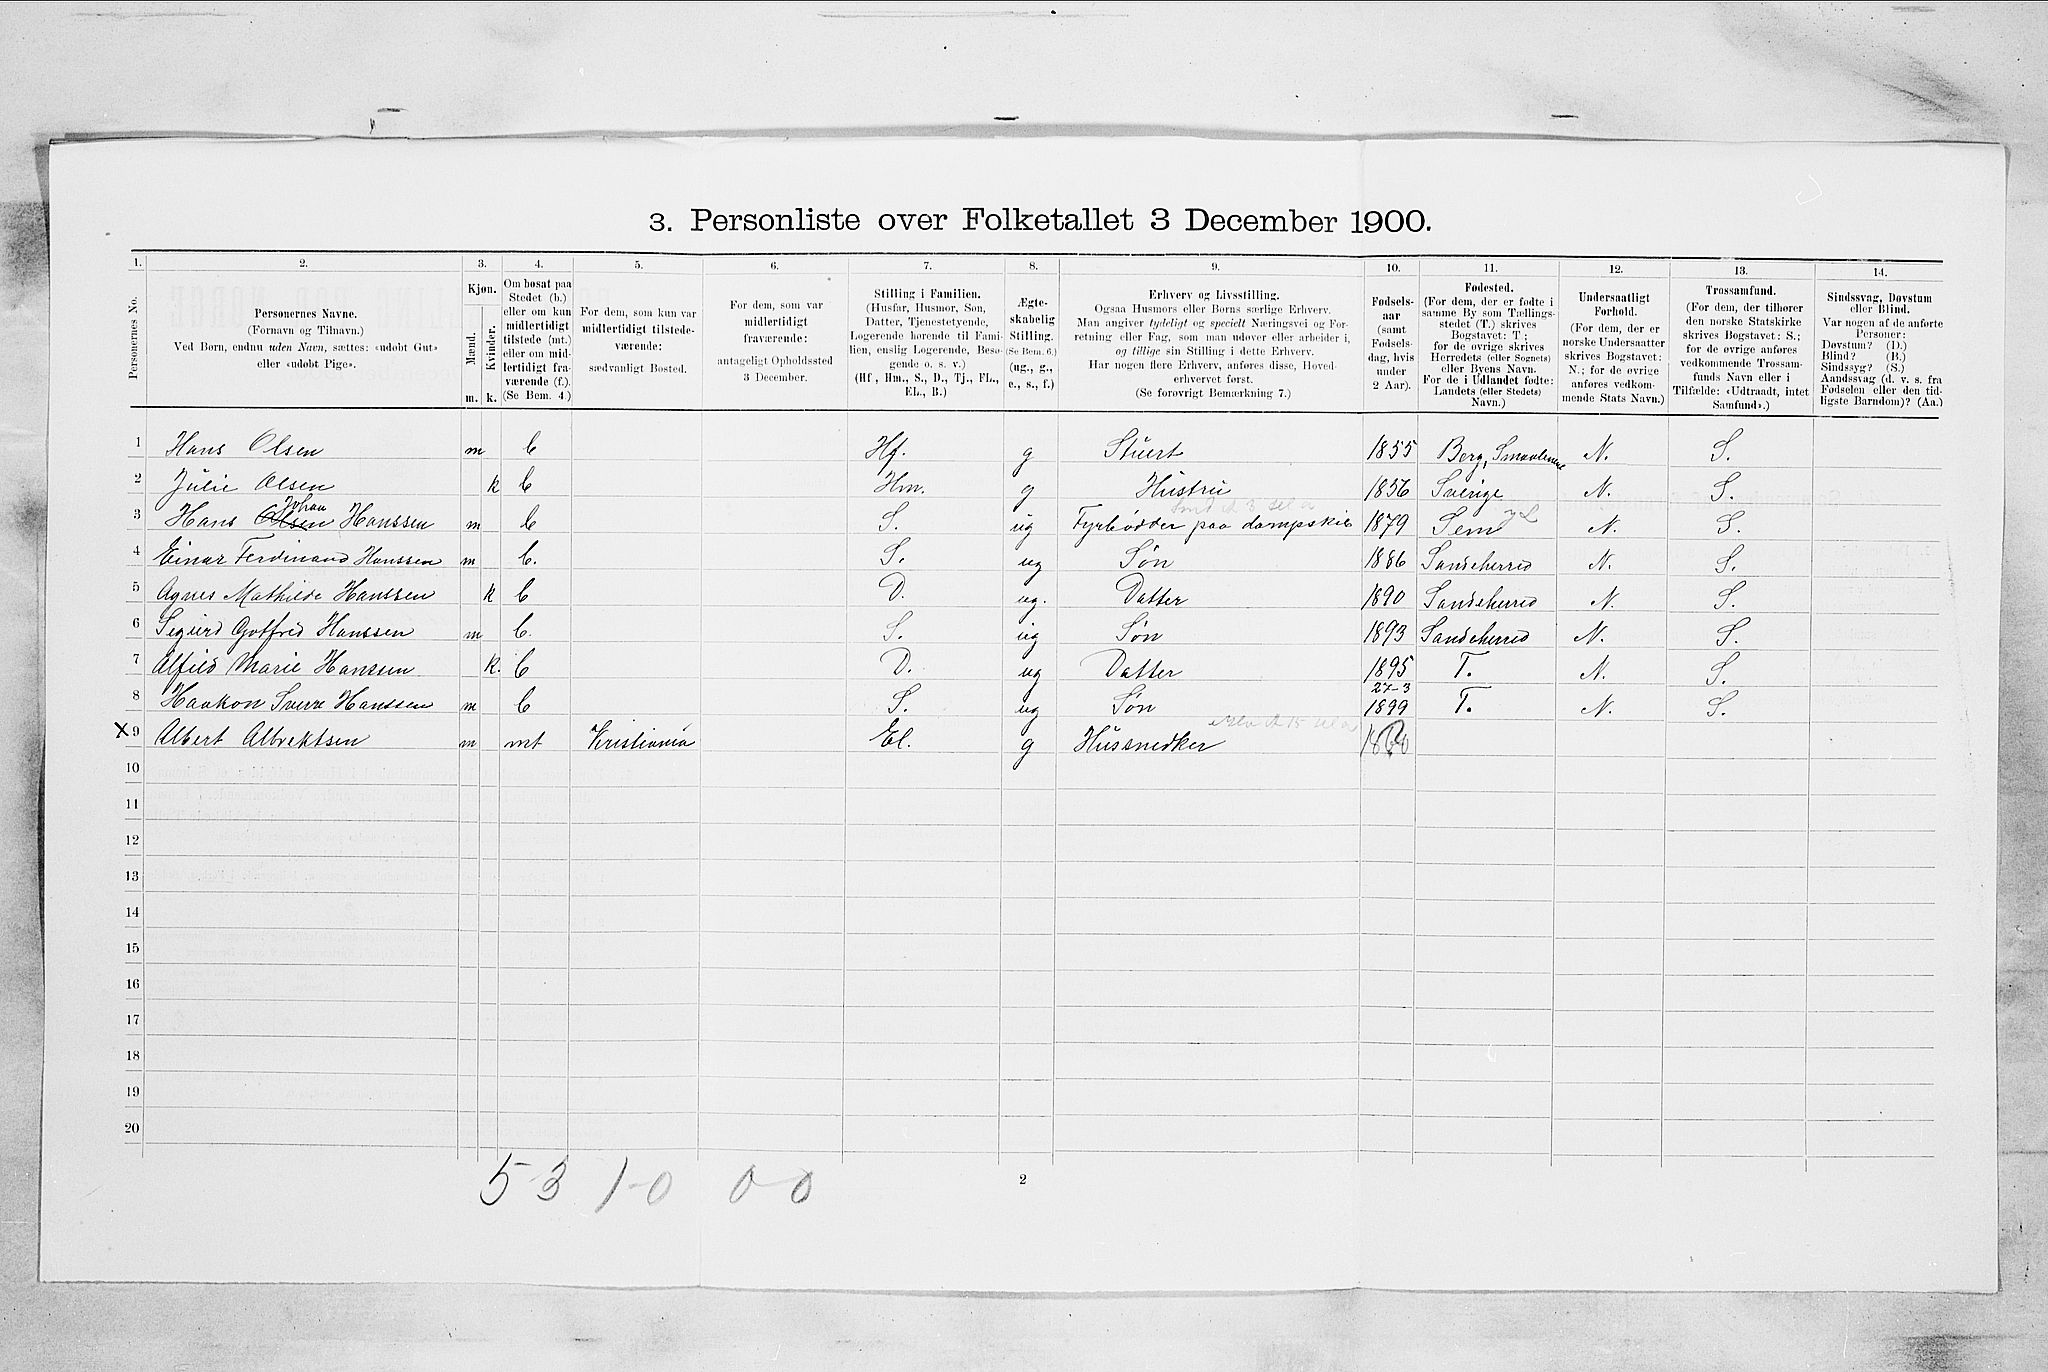 3. Personliste over Folketallet 3 December 1900.
1. 2. 3. 4. 5. 6. 7. 8. 9. 10. 11. 12. 13. 14.
Personernes No.
Personernes Navne.
(Fornavn og Tilnavn.)
Ved Børn, endnu uden Navn, sættes: «udøbt Gut»
eller «udøbt Pige».
Kjøn.
Mænd.
Kvinder.
m. k.
Om bosat paa
Stedet (b.)
eller om kun
midlertidigt
tilstede (mt.)
eller om mid-
lertidigt fra-
værende (f.).
(Se Bem. 4.)
For dem, som kun var
midlertidigt tilstede-
værende:
sædvanligt Bosted.
For dem, som var
midlertidigt
fraværende:
antageligt Opholdssted
3 December.
Stilling i Familien.
(Husfar, Husmor, Søn,
Datter, Tjenestetyende,
Logerende hørende til Fami-
lien, enslig Logerende, Besø-
gende o. s. v.)
(Hf., Hm., S., D., Tj., FL.,
EL., B.)
Ægte-
skabelig
Stilling.
(Se Bem. 6.)
(ug., g.,
e., s., f.)
Erhverv og Livsstilling.
Ogsaa Husmors eller Børns særlige Erhverv.
Man angiver tydeligt og specielt Næringsvei og For-
retning eller Fag, som man udøver eller arbeider i,
og tillige sin Stilling i dette Erhverv.
Har nogen flere Erhverv, anføres disse, Hoved-
erhvervet først.
(Se forøvrigt Bemærkning 7.)
Fødsels-
aar
(samt
Fødsels-
dag, hvis
under
2 Aar).
Fødested.
(For dem, der er fødte i
samme By som Tællings-
stedet (T.) skrives
Bogstavet: T.;
for de øvrige skrives
Herredets (eller Sognets)
eller Byens Navn.
For de i Udlandet fødte:
Landets (eller Stedets)
Navn.)
Undersaatligt
Forhold.
(For dem, der er
norske Undersaatter
skrives Bogstavet:
N.; for de øvrige
anføres vedkom-
mende Stats Navn.)
Trossamfund.
(For dem, der tilhører
den norske Statskirke
skrives Bogstavet: S.;
for de øvrige anføres
vedkommende Trossam-
funds Navn eller i
Tilfælde: «Udtraadt, intet
Samfund».)
Sindssvag, Døvstum
eller Blind.
Var nogen af de anførte
Personer:
Døvstum? (D.)
Blind? (B.)
Sindssyg? (S.)
Aandssvag (d. v. s. fra
Fødselen eller den tid-
ligste Barndom)? (Aa.)
1 Hans Olsen m b Hf. g Stuert 1855 Berg, Smaalenene N. S.
2 Julie Olsen k b Hm. g Hustru 1856 Sverige N. S.
Johan
3 Hans Olsen Hanssen m b S. ug Fyrbødder paa dampskib 1879 Sem N. S.
4 Einar Ferdinand Hanssen m b. S. ug Søn 1886 Sandeherred N. S.
5 Agnes Mathilde Hanssen k b D. ug. Datter 1890 Sandeherred N. S.
6 Sigurd Gotfred Hanssen m b. S. ug Søn 1893 Sandeherred N. S.
7 Alfild Marie Hanssen k. b D. ug Datter 1895 T. N. S.
27-3
8 Haakon Sverre Hanssen m b S. ug Søn 1899 T. N. S.
X 9 Albert Albrektsen m mt Kristiania El. g Hussnedker
10
11
12
13
14
15
16
17
18
19
20
5-3 1-0 0-0
2